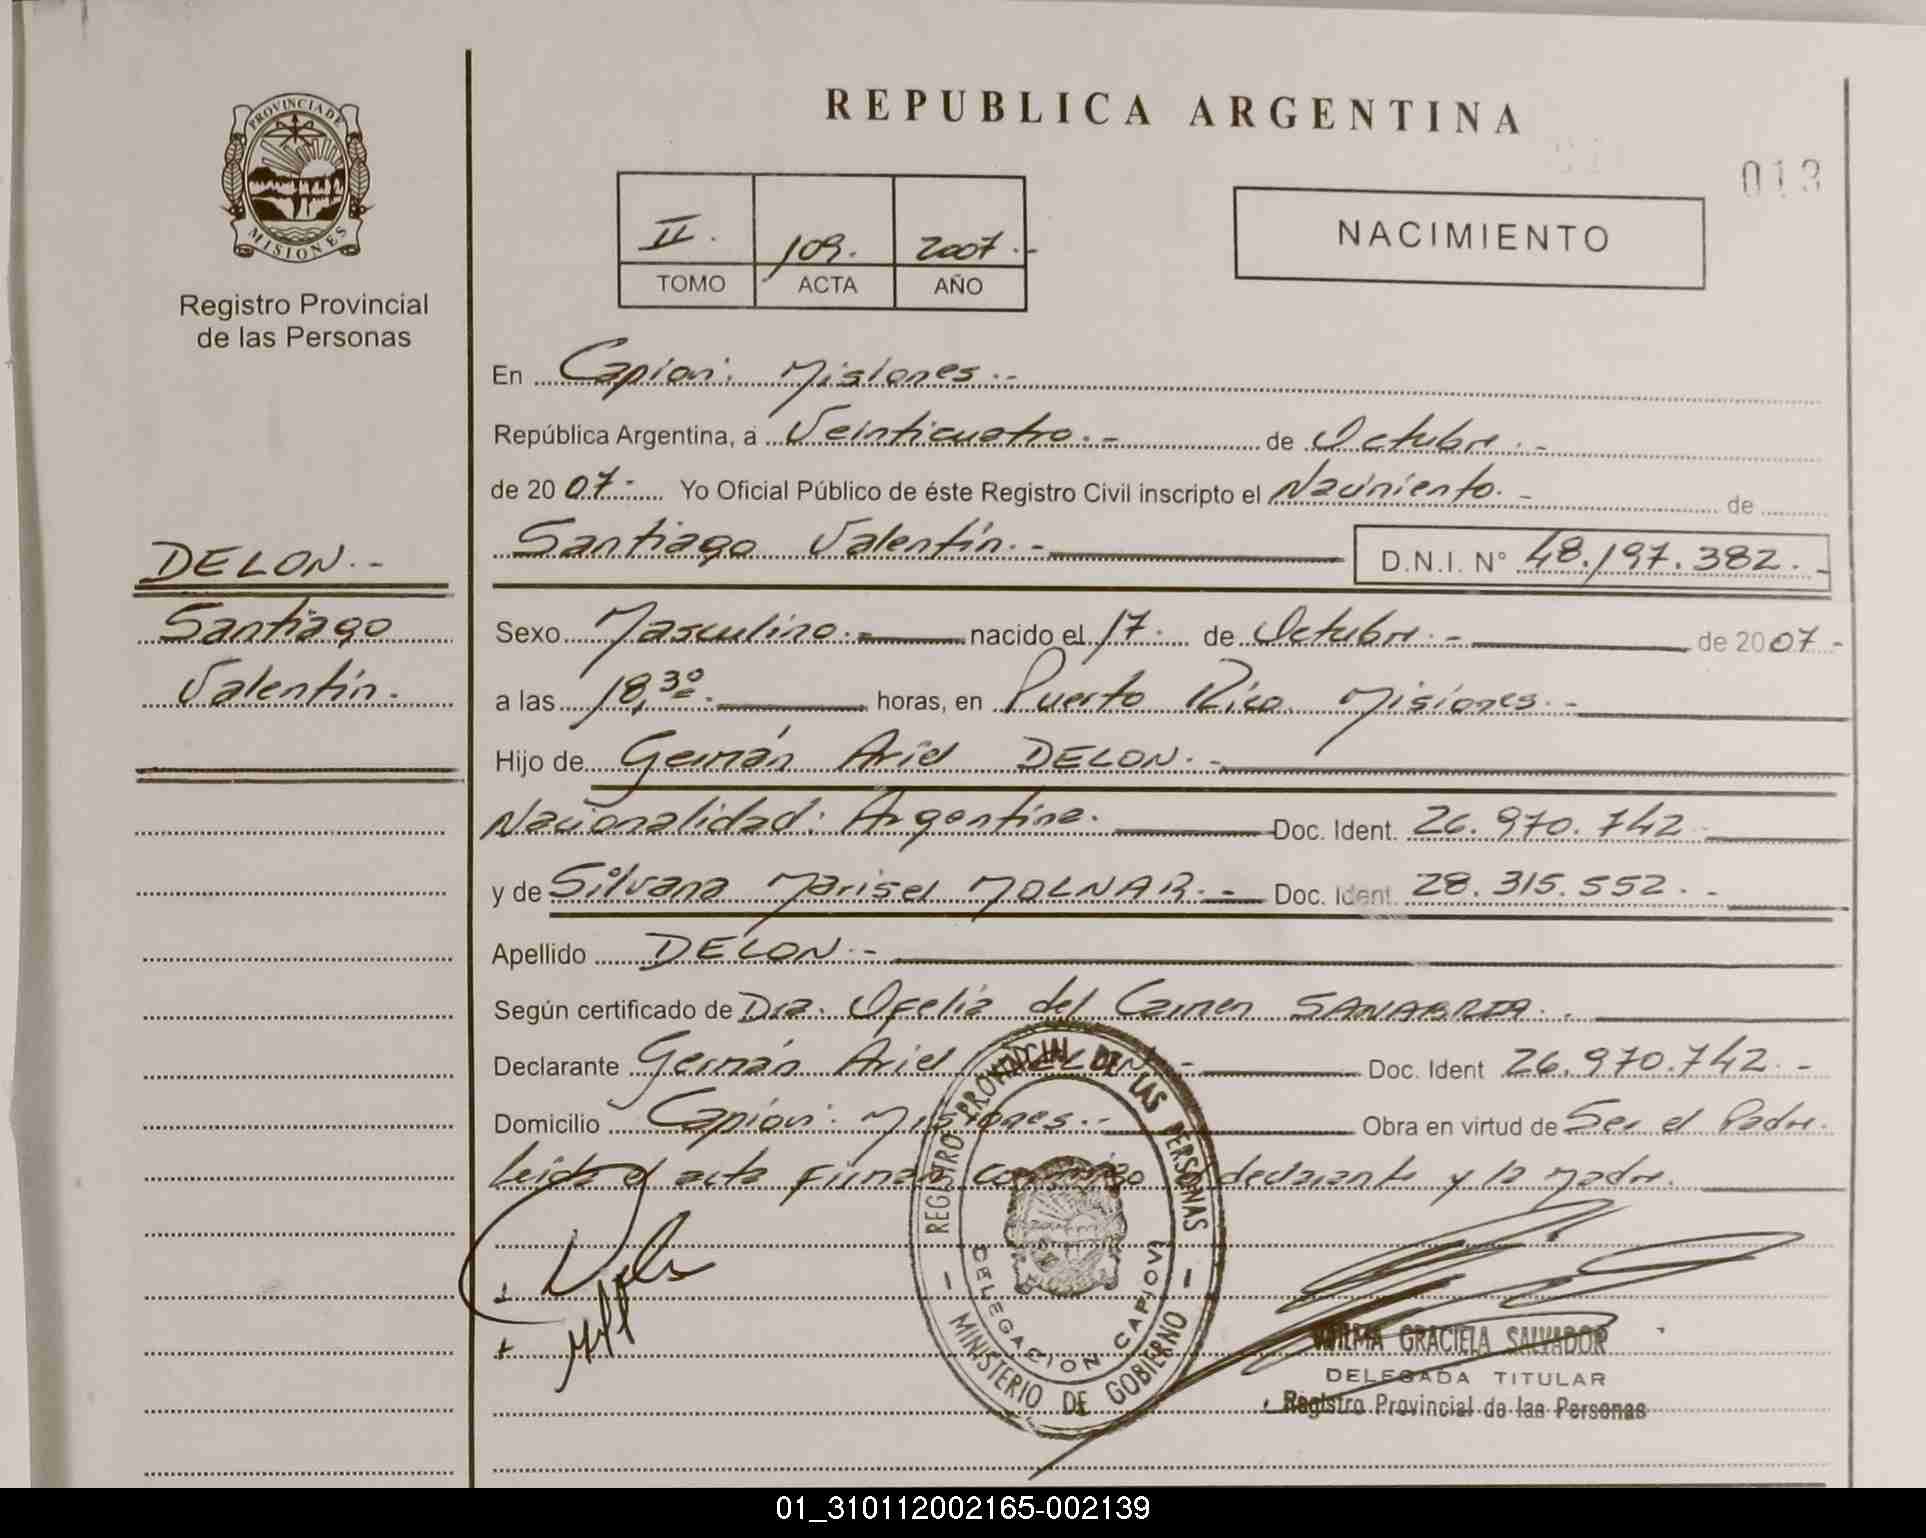 PROVINCIA DE
MISIONES
Registro Provincial
de las Personas
DELON.-
Santiago
Valentín.
REPUBLICA ARGENTINA
013
II. 109. 2007.-
TOMO ACTA AÑO
NACIMIENTO
En Capioví Misiones.-
República Argentina, a Veinticuatro.- de Octubre.-
de 2007.- Yo Oficial Público de éste Registro Civil inscripto el Nacimiento.- de
Santiago Valentín.- D.N.I. N° 48.197.382.-
Sexo Masculino.- nacido el 17. de Octubre.- de 2007-
a las 18,30. horas, en Puerto Rico Misiones.-
Hijo de Germán Ariel DELON.-
Nacionalidad: Argentina. Doc. Ident. 26.970.742
y de Silvana Marisel MOLNAR.- Doc. Ident. 28.315.552.-
Apellido DELON.-
Según certificado de Dra. Ofelia del Carmen SANABRIA.
Declarante Germán Ariel DELON.- Doc. Ident 26.970.742.-
Domicilio Capioví Misiones.- Obra en virtud de Ser el Padre.
Leida el acta firman conmigo el declarante y la madre.
REGISTRO PROVINCIAL DE LAS PERSONAS
DELEGACION CAPIOVI
MINISTERIO DE GOBIERNO
WILMA GRACIELA SALVADOR
DELEGADA TITULAR
Registro Provincial de las Personas
01_310112002165-002139